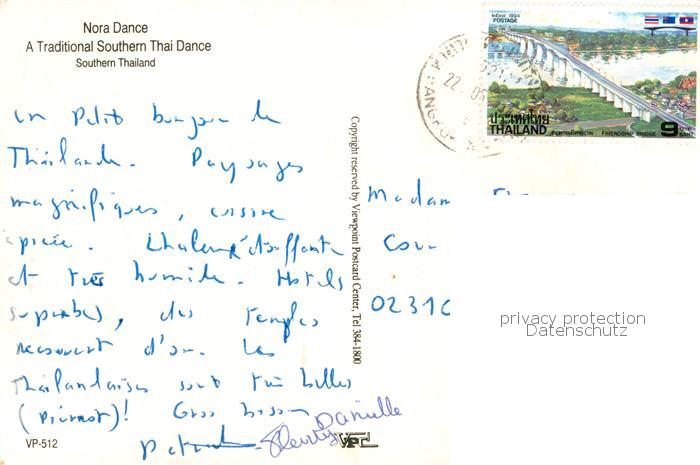 Nora Dance
A Traditional Southern Thai Dance
Southern Thailand
un petit bonjour de
Thaïlande. Paysages
magnifiques, cuisine
épicée. Chaleur étouffante
et très humide. Hotels
superbes, des temples
recouvert d'or. Les
Thaïlandaises sont très belles
(Pierrot)! Gros bisous
Danielle
VP-512
Copyright reserved by Viewpoint Postcard Center, Tel 384-1800
1994
POSTAGE
ประเทศไทย
THAILAND
FRIENDSHIP BRIDGE
9
BAHT
22
Madam
Cou
0231
privacy protection
Datenschutz